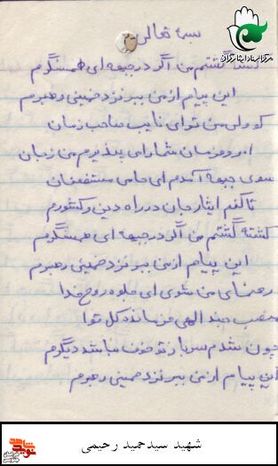 بسمه تعالی
کشته گشتم من اگر در جبهه ای همسنگرم
این پیام از من ببر نزد خمینی رهبرم
که ولی من توای نایب صاحب زمان
امر و فرمان شما را می پذیرم من زبان
سوی جبهه آمدم ای حامی مستضعفان
تا کنم ایثار جان در راه دین و کشورم
کشته گشتم من اگر در جبهه ای همسنگرم
این پیام از من ببر نزد خمینی رهبرم
رهنمای من شوی ای جلوه روح خدا
منصب جند الهی فرمانده کل قوا
چون شدم سرباز تو خوف نباشد دیگرم
این پیام از من ببر نزد خمینی رهبرم
شهید سیدحمید رحیمی